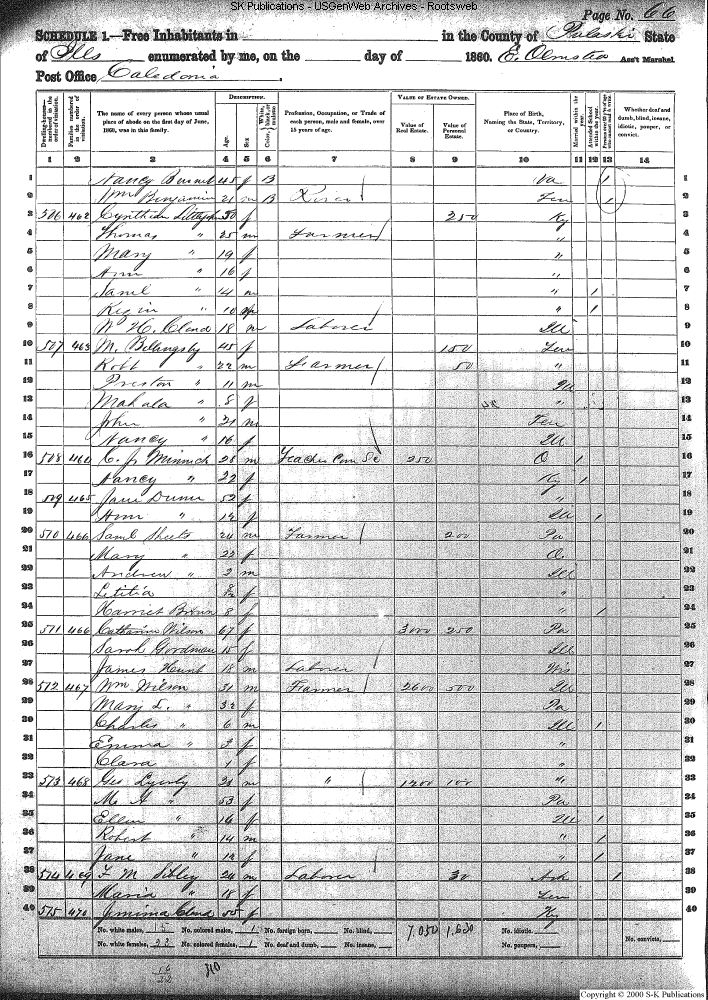 SK Publications - USGenWeb Archives - Rootsweb
Page No. 66
SCHEDULE 1.—Free Inhabitants in in the County of Pulaski State
of Ills enumerated by me, on the day of 1860. E. Olmstea Ass't Marshal.
Post Office Caledonia.
Dwelling-houses—numbered in the order of visitation. Families numbered in the order of visitation. The name of every person whose usual place of abode on the first day of June, 1860, was in this family. DESCRIPTION. Age. Sex Color, White, black, or mulatto. Profession, Occupation, or Trade of each person, male and female, over 15 years of age. VALUE OF ESTATE OWNED. Value of Real Estate. Value of Personal Estate. Place of Birth, Naming the State, Territory, or Country. Married within the year. Attended School within the year. Whether deaf and dumb, blind, insane, idiotic, pauper, or convict.
1 2 3 4 5 6 7 8 9 10 11 12 13 14
1 Nancy 45 f B Va / 1
2 Wm Benjamin 21 m B Ten / 2
3 506 462 Cynthia 50 f 250 Ky 3
4 Thomas " 25 m Farmer / " 4
5 Mary " 19 f " 5
6 Ann " 16 f " 6
7 Saml " 14 m " / 7
8 " 10 " / 8
9 W H. Clend 18 m Laborer Ill 9
10 507 463 M. Billingsby 45 f 150 Ten 10
11 Robt " 22 m Farmer / 50 " 11
12 Preston " 11 m Ill 12
13 Mahala " 8 f " 13
14 John " 21 m Ten 14
15 Nancy " 16 f Ill 15
16 508 464 C. J. Minnich 28 m Teacher Com Sc 250 O / 16
17 Nancy " 22 f Ky / 17
18 509 465 Jane Dunn 52 f " 18
19 Ann " 12 f Ill / 19
20 510 466 Saml Sheets 24 m Farmer / 200 Pa 20
21 Mary " 22 f O. 21
22 Andrew " 2 m Ill 22
23 Letitia f " 23
24 Harriet Brown 8 f " / 24
25 511 466 Catharine Wilson 67 f 3000 250 Pa 25
26 Sarah Goodman 15 f Ill 26
27 James Hunt 18 m Laborer Wis 27
28 512 467 Wm Wilson 31 m Farmer / 2600 500 Ill 28
29 Mary L. " 32 f Pa 29
30 Charles " 6 m Ill / 30
31 Emma " 3 f " 31
32 Clara 1 f " 32
33 513 468 Geo Lyerly 21 m " / 1200 100 " 33
34 " 53 f Pa 34
35 Ellen " 16 f Ill / 35
36 Robert " 14 m " / 36
37 Jane " 12 f " / 37
38 514 469 F. M. Sibley 24 m Laborer 30 Ark / 38
39 Maria " 18 f Ten 39
40 515 470 Jemima Clend 55 f Ky 40
No. white males, No. colored males, 1 No. foreign born, No. blind, 7.050 1.630 No. idiotic,
No. white females, 22 No. colored females, 1 No. deaf and dumb, No. insane, No. paupers, No. convicts,
Copyright © 2000 S-K Publications